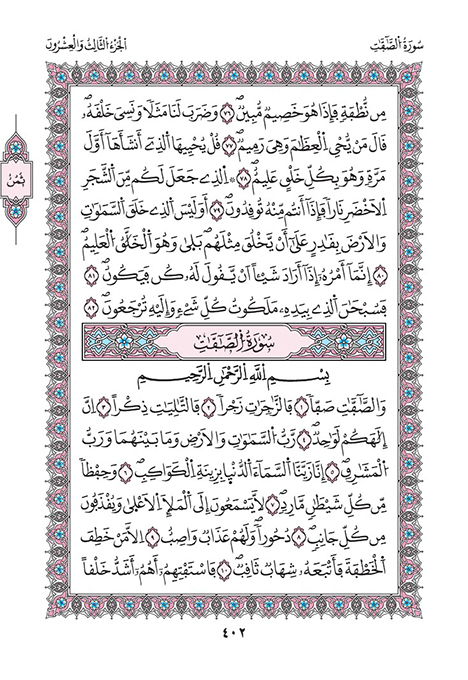 سُورَةُ الصَّٰٓفَّٰتِ
الجُزْءُ الثَّالِثُ وَالْعِشْرُونَ
مِن نُّطْفَةٖ فَإِذَا هُوَ خَصِيمٞ مُّبِينٞۖ ٧٦ وَضَرَبَ لَنَا مَثَلٗا وَنَسِيَ خَلْقَهُۥۖ
قَالَ مَنْ يُّحْيِ اِلْعِظَٰمَ وَهِيَ رَمِيمٞۖ ٧٧ قُلْ يُحْيِيهَا اَلذِےٓ أَنشَأَهَآ أَوَّلَ
مَرَّةٖ وَهُوَ بِكُلِّ خَلْقٍ عَلِيمٌۖ ٧٨ اِلذِے جَعَلَ لَكُم مِّنَ اَلشَّجَرِ
اِلَاخْضَرِ نَاراٗ فَإِذَآ أَنتُم مِّنْهُ تُوقِدُونَۖ ٧٩ أَوَلَيْسَ اَلذِے خَلَقَ اَلسَّمَٰوَٰتِ
وَالَارْضَ بِقَٰدِرٍ عَلَىٰٓ أَنْ يَّخْلُقَ مِثْلَهُمۖ بَلَىٰ وَهُوَ اَلْخَلَّٰقُ اَلْعَلِيمُۖ
٨٠ إِنَّمَآ أَمْرُهُۥٓ إِذَآ أَرَادَ شَيْـٔاً أَنْ يَّقُولَ لَهُۥ كُن فَيَكُونُۖ ٨١
فَسُبْحَٰنَ اَلذِے بِيَدِهِۦ مَلَكُوتُ كُلِّ شَےْءٖ وَإِلَيْهِ تُرْجَعُونَۖ ٨٢
سُورَةُ الصَّٰٓفَّٰتِ
بِسْمِ اِللَّهِ اِلرَّحْمَٰنِ اِلرَّحِيمِ
وَالصَّٰٓفَّٰتِ صَفّاٗ ١ فَالزَّٰجِرَٰتِ زَجْراٗ ٢ فَالتَّٰلِيَٰتِ ذِكْراً ٣ اِنَّ
إِلَٰهَكُمْ لَوَٰحِدٞۖ ٤ رَّبُّ السَّمَٰوَٰتِ وَالَارْضِ وَمَا بَيْنَهُمَا وَرَبُّ
اُلْمَشَٰرِقِۖ ٥ إِنَّا زَيَّنَّا اَلسَّمَآءَ اَلدُّنْيَا بِزِينَةِ اِلْكَوَاكِبِۖ ٦ وَحِفْظاٗ
مِّن كُلِّ شَيْطَٰنٖ مَّارِدٖۖ ٧ لَّا يَسْمَعُونَ إِلَى اَلْمَلَإِ اِلَاعْلَىٰ وَيُقْذَفُونَ
مِن كُلِّ جَانِبٖۖ ٨ دُحُوراٗۖ وَلَهُمْ عَذَابٞ وَاصِبٌۖ ٩ اِلَّا مَنْ خَطِفَ
اَلْخَطْفَةَ فَأَتْبَعَهُۥ شِهَابٞ ثَاقِبٞۖ ١٠ فَاسْتَفْتِهِمُۥٓ أَهُمُۥٓ أَشَدُّ خَلْقاً
ثُمُن
٤٠٢